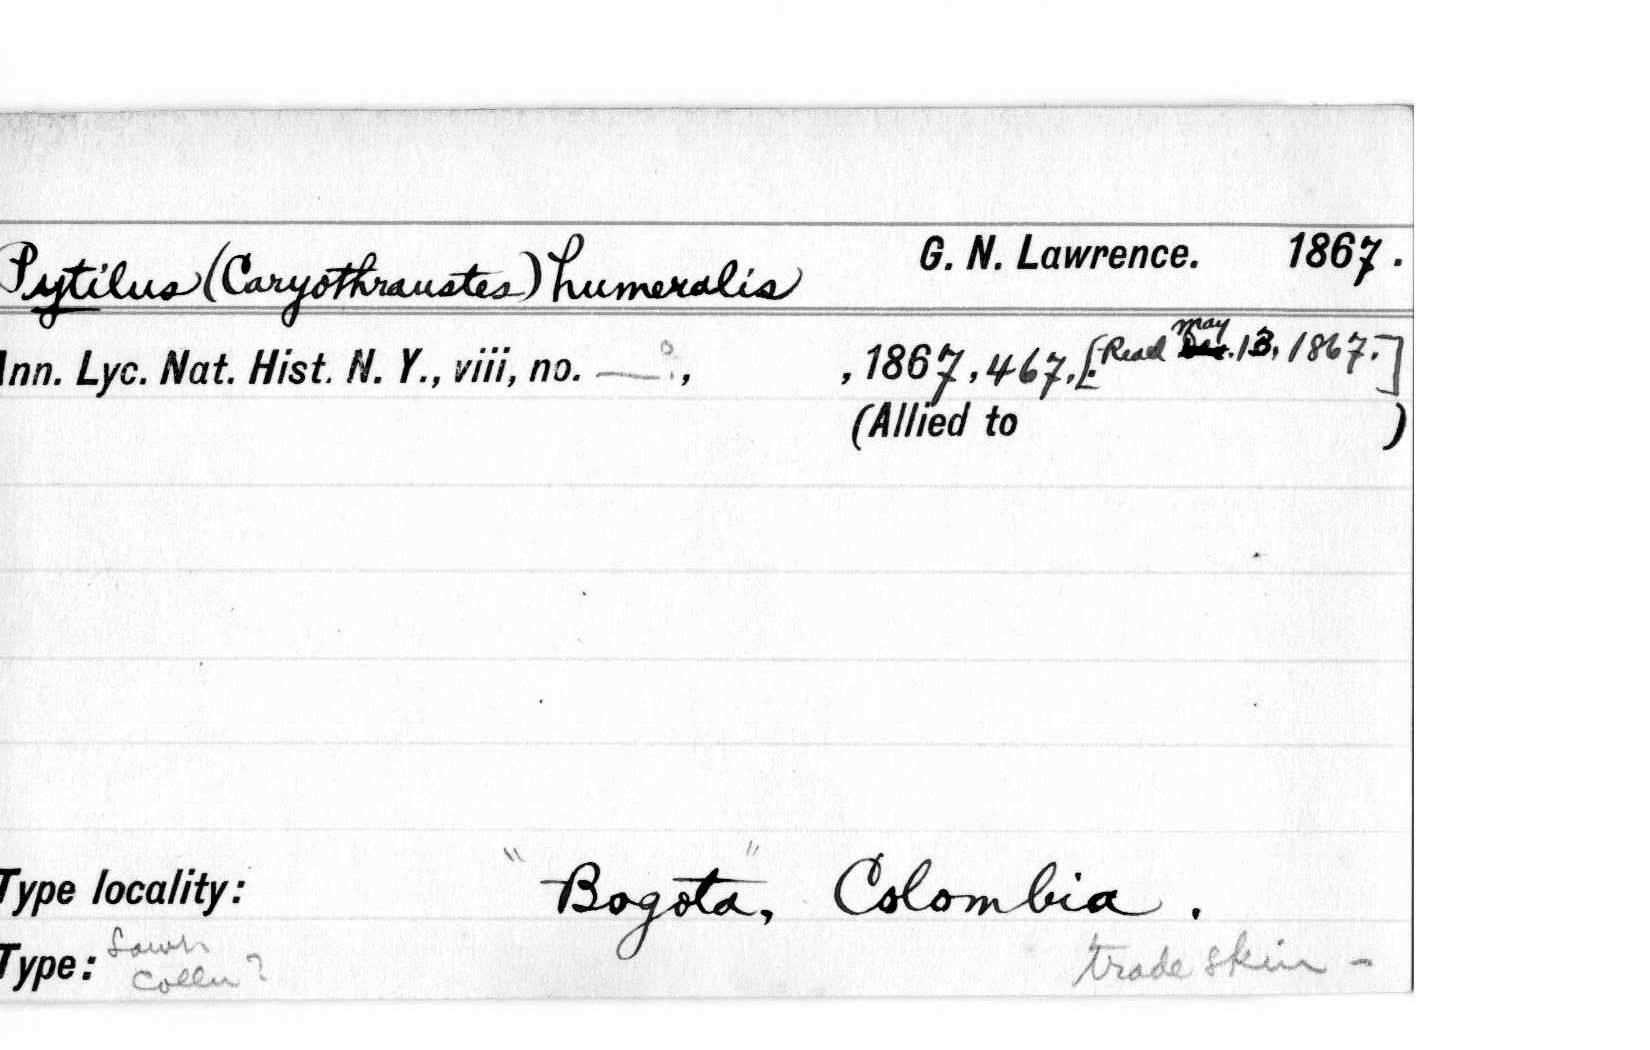 Pytilus (Caryothraustes) humeralis G. N. Lawrence. 1867.
Ann. Lyc. Nat. Hist. N. Y., viii, no. —?, , 1867, 467. [Read May 13, 1867.]
(Allied to )
Type locality: "Bogota", Colombia.
Type: Lawr. Colln? trade skin -